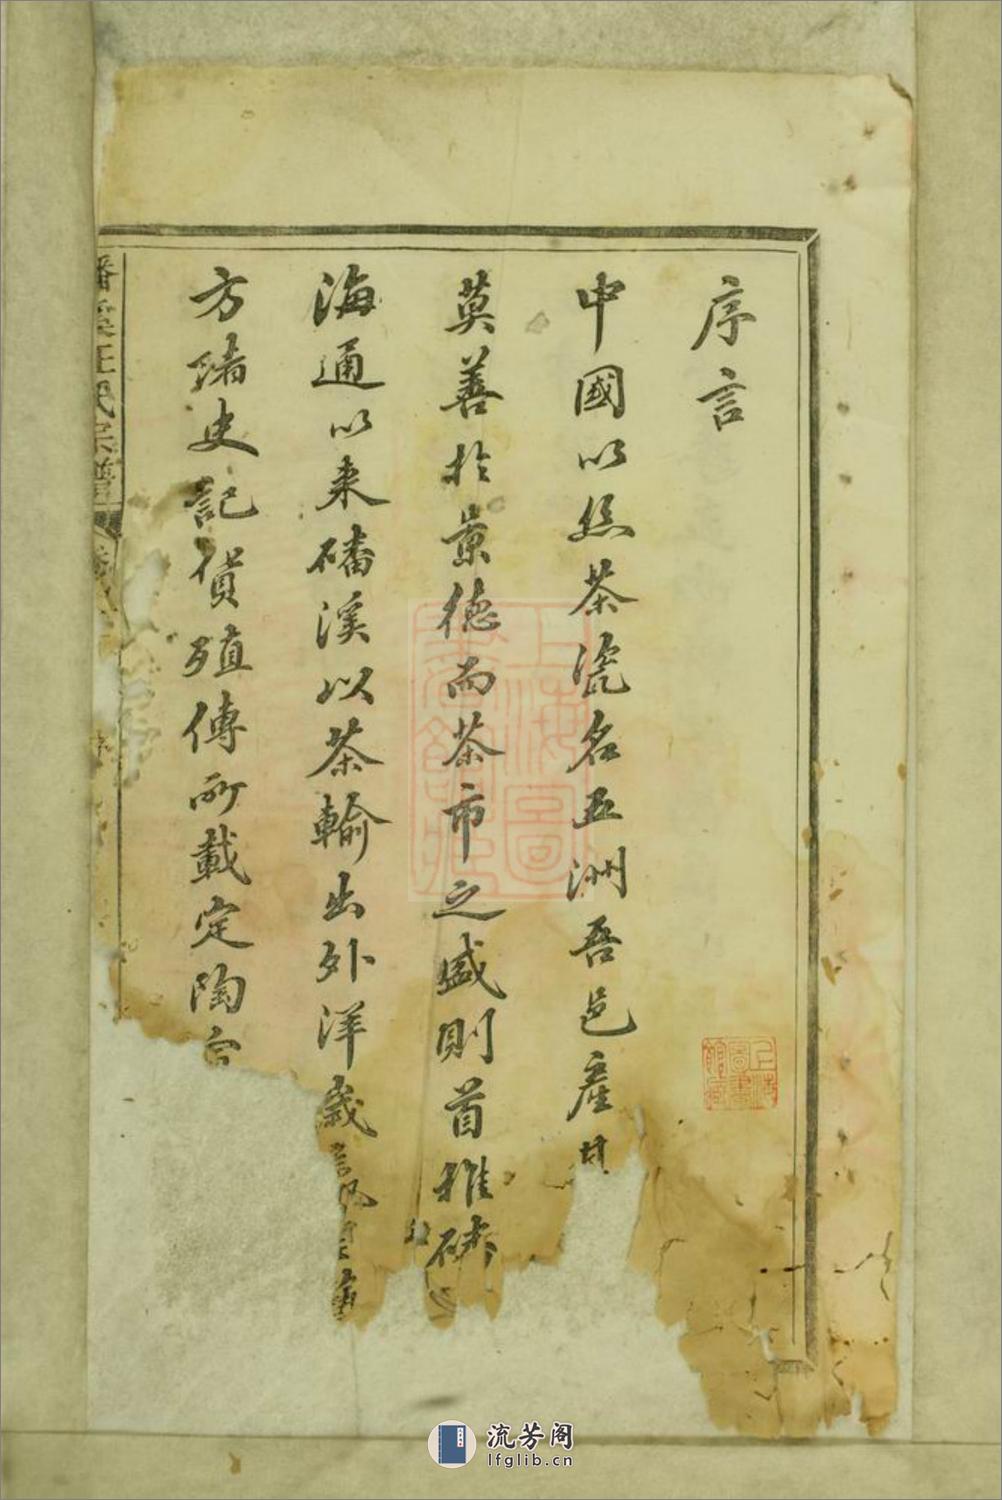 序言
中國以絲茶瓷名五洲吾邑產
莫善於景德而茶市之盛則首推磻
海通以來磻溪以茶輸出外洋歲
方諸史記貨殖傳所載定陶
磻溪汪氏宗譜
上海圖書館藏
上海圖書館藏
流芳阁
lfglib.cn